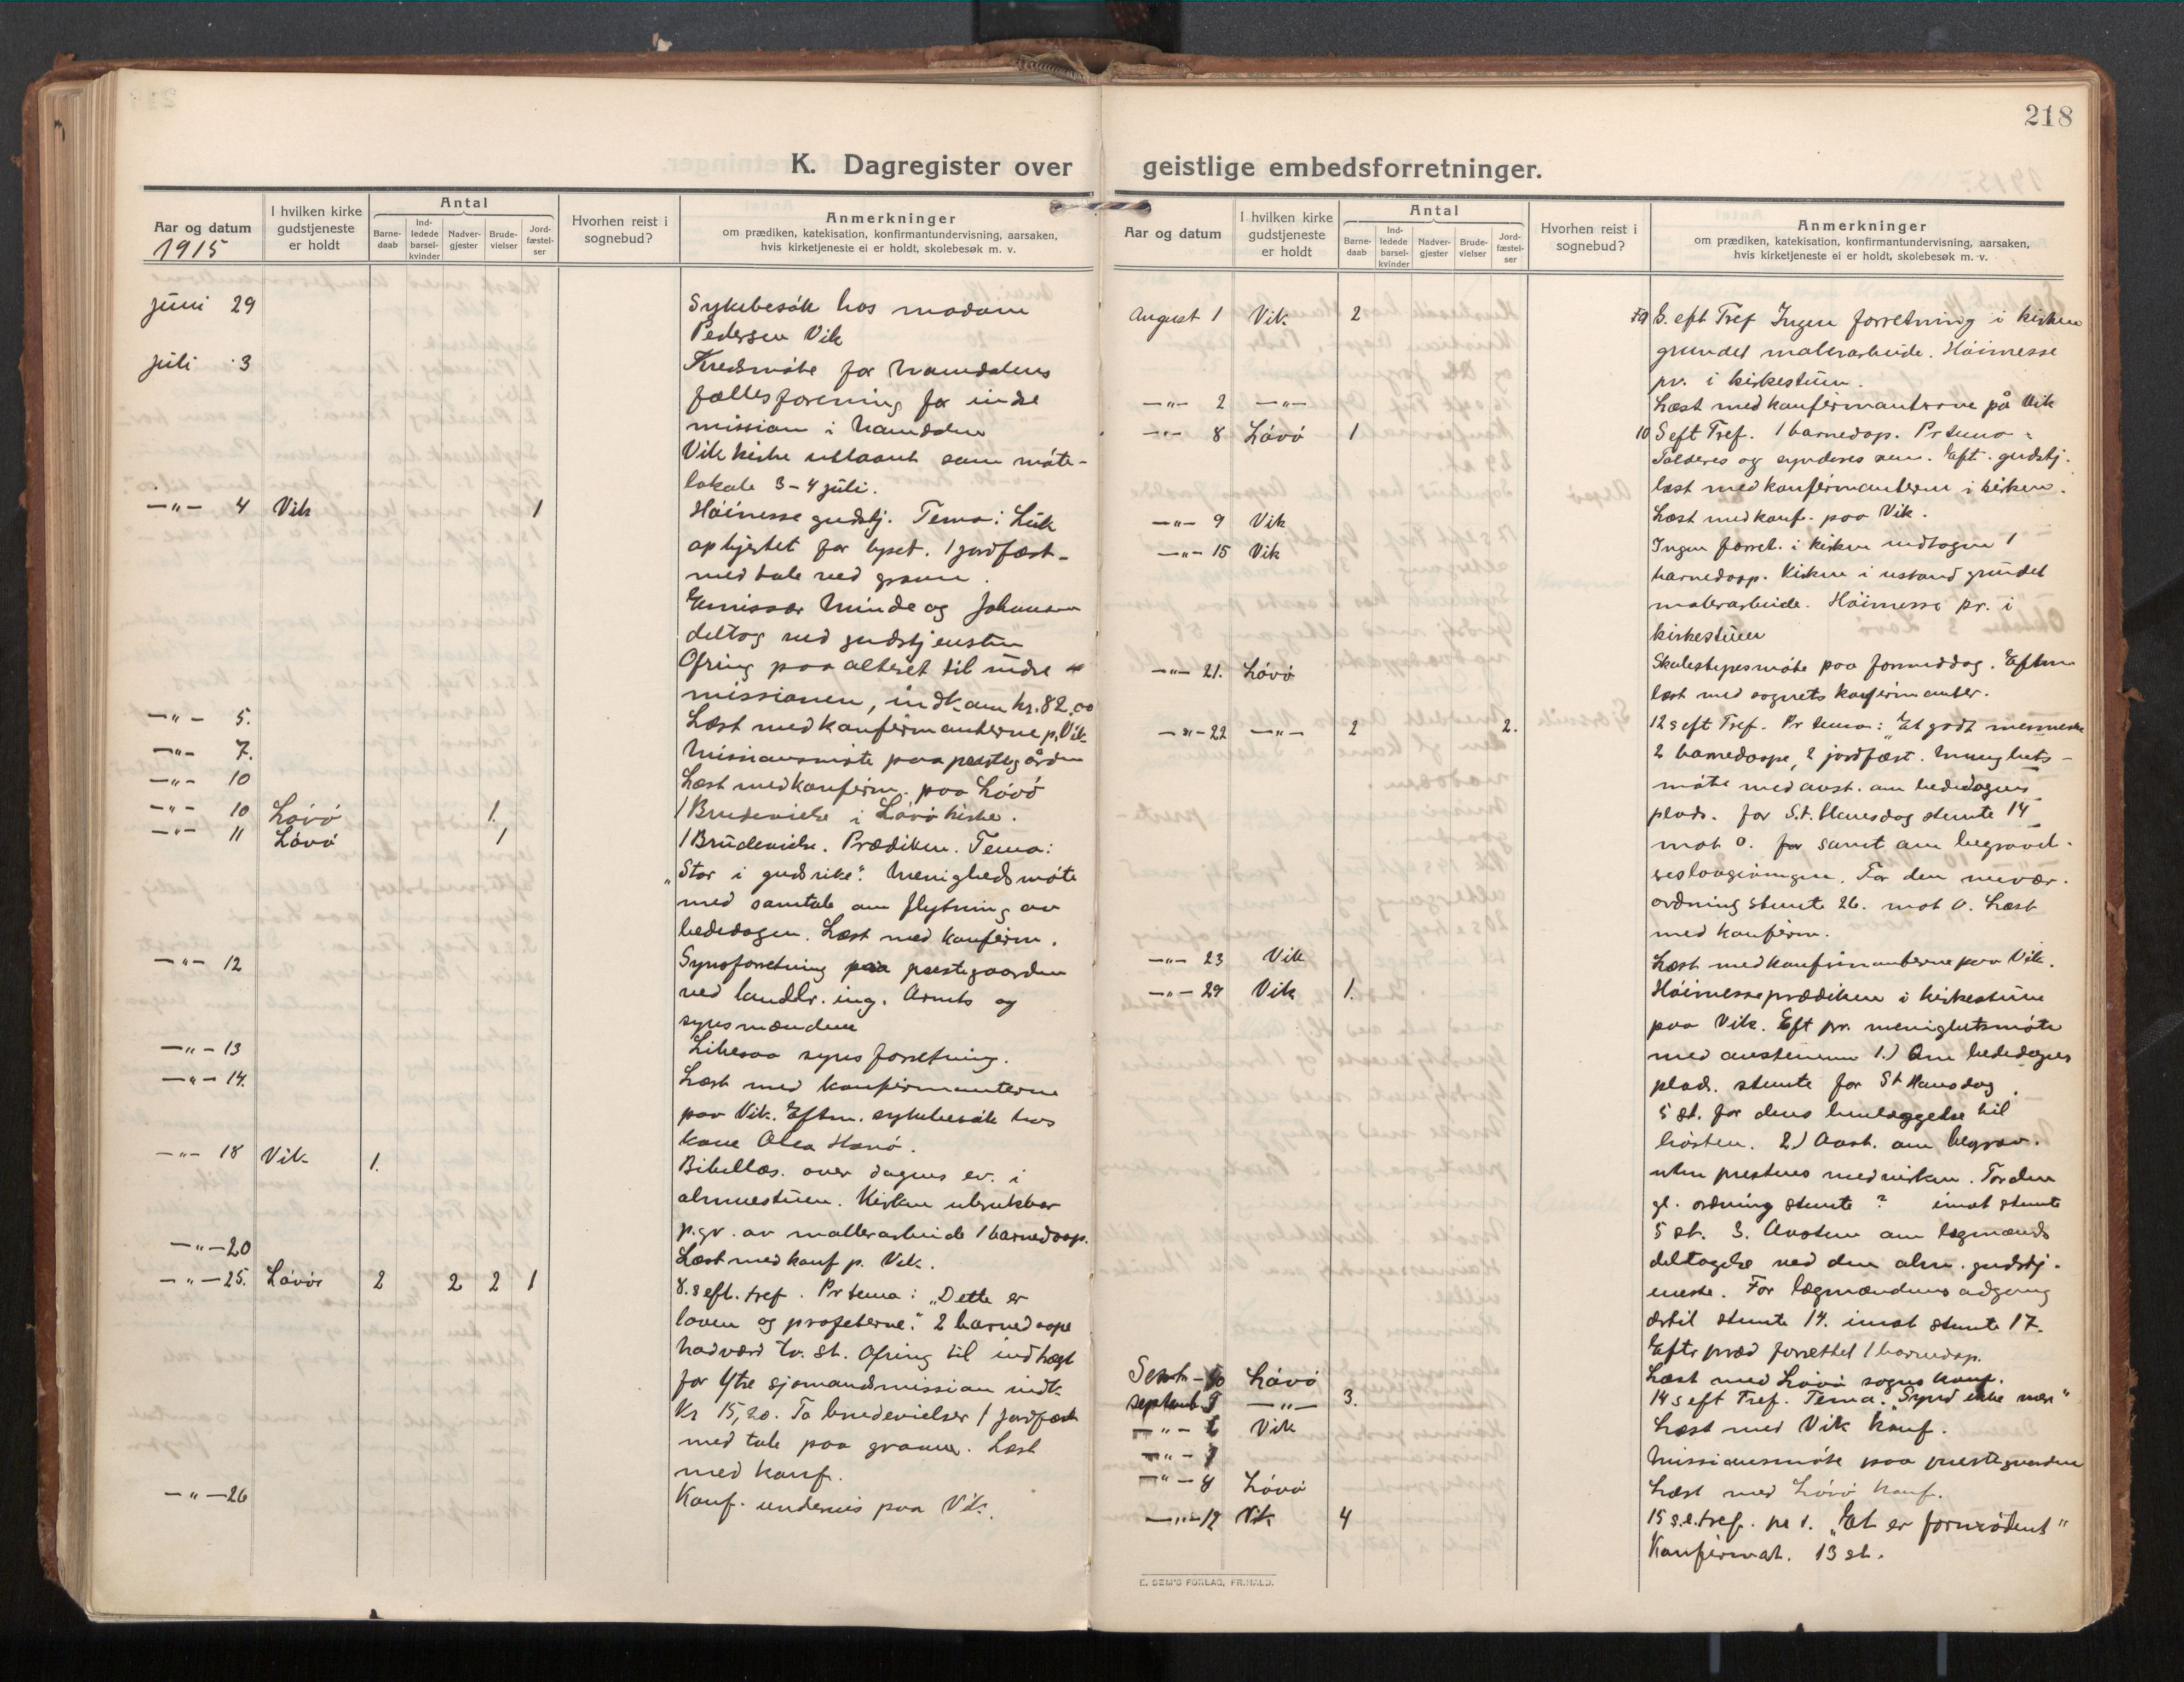 218
K. Dagregister over
geistlige embedsforretninger.
Aar og datum
1915
I hvilken kirke
gudstjeneste
er holdt
Antal
Barne-
daab
Ind-
ledede
barsel-
kvinder
Nadver-
gjester
Brude-
vielser
Jord-
fæstel-
ser
Hvorhen reist i
sognebud?
Anmerkninger
om prædiken, katekisation, konfirmantundervisning, aarsaken,
hvis kirketjeneste ei er holdt, skolebesøk m. v.
juni 29 Sykebesök hos madam
Pedersen Vik
juli 3 Kredsmöte for Namdalens
fællesforening for indre
mission i Namdalen
Vik kirke utlaant som möte-
lokale 3-4 juli.
-"- 4 Vik 1 Höimesse gudstj. Tema: Luk
op hjertet for lyset. 1 jordfæst-
med tale ved graven.
Emissær Minde og Johansen
deltog ved gudstjensten
Ofring paa alteret til indre
missionen, indkom kr. 82,00
-"- 5. Læst med konfirmanterne p. Vik
-"- 7. Missionsmöte paa prestegården
-"- 10 Læst med konfirm. paa Lövö
-"- 10 Lövö 1. 1 Brudevielse i Lövö kirke.
-"- 11 Lövö 1 1 Brudevielse. Prædiken. Tema:
"Stor i guds rike". Menighedsmöte
med samtale om flytning av
bededagen. Læst med konfirm.
-"- 12 Synsforretning paa prestegaarden
ved landbr. ing. Arnts og
synsmændene
-"- 13 Likesaa synsforretning.
-"- 14. Læst med konfirmanterne
paa Vik. Eftm. sykebesök hos
kone Olea
-"- 18 Vik 1. Bibellæs. over dagens ev. i
almuestuen. Kirken ubrukbar
p.gr. av mallerarbeide 1 barnedaap.
-"- 20 Læst med konf p. Vik.
-"- 25. Lövö 2 2 2 1 8. s eft. tref. Pr tema: "Dette er
loven og profeterne". 2 barnedaape
Nadværd to. st. Ofring til indtægt
for Ytre sjømandsmission indk.
Kr 15,20. To brudevielser 1 jordfæst
med tale paa graven. Læst
med konf.
-"- 26 Konf. undervis paa Vik.
Aar og datum
I hvilken kirke
gudstjeneste
er holdt
Antal
Barne-
daab
Ind-
ledede
barsel-
kvinder
Nadver-
gjester
Brude-
vielser
Jord-
fæstel-
ser
Hvorhen reist i
sognebud?
Anmerkninger
om prædiken, katekisation, konfirmantundervisning, aarsaken,
hvis kirketjeneste ei er holdt, skolebesøk m. v.
August 1 Vik 2 S. eft Tref Ingen forretning i kirken
grundet malerarbeide. Höimesse
pr. i kirkestuen.
-"- 2 -"- Læst med konfirmanterne på Vik
-"- 8 Lövö 1 10 S eft Tref. 1 barnedop. Pr tema:
Tolderes og synderes ven. Eft. gudstj.
læst med konfirmanterne i kirken.
-"- 9 Vik Læst med konf. paa Vik.
-"- 15 Vik Ingen forret. i kirken undtagen 1
barnedaap. Kirken i ustand grundet
malerarbeide. Höimesse pr. i
kirkestuen
-"- 21. Lövö Skolestyresmöte paa formiddag. Eftm
læst med sognets konfirmanter.
-"- 22 -"- 2 2. 12 s eft Tref. Pr tema: "Et godt menneske
2 barnedaape, 2 jordfæst. Menighets-
möte med avst. om bededagens
plads. for S.t. Hansdag stemte 14
mot 0. for samt om begravel-
seslovgivningen. For den nuvær.
ordning stemte 26. mot 0. Læst
med konfirm.
-"- 23 Vik Læst med konfirmanterne paa Vik.
-"- 29 Vik 1. Höimesseprædiken i kirkestuen
paa Vik. Eft pr. menighetsmöte
med avstemn 1.) Om bededagens
plads. stemte for St Hansdag.
5 st. for dens henlæggelse til
hösten. 2.) Avst. om begrav.
uten prestens medvirken. For den
gl. ordning stemte ? imot stemte
5 st. 3. Avstem om lægmænds
deltagelse ved den alm. gudstj-
eneste. For lægmændens adgang
dertil stemte 14. imot stemte 17.
Eft pred forrettet 1 barnedap.
Sept Lövö Læst med Lövö sogns konf.
septemb 5 -"- 3. 14 s eft Tref. Tema: "Synd ikke mer"
-"- 6 Vik Læst med Vik konf.
-"- 7 Missionsmöte paa prestegaarden
-"- 8 Lövö Læst med Lövö konf.
-"- 12 Vik 4 15 s.e. tref. "Et er fornödent"
Konfirmat. 13 st.
E. SEM'S FORLAG, FR.HALD.